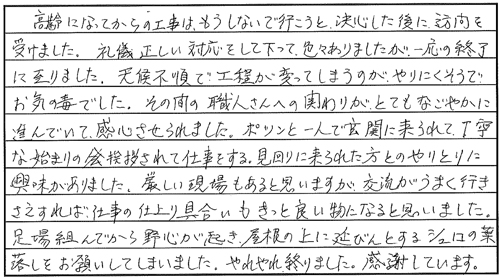 高齢になってからの工事は、もうしないで行こうと、決心した後に、訪問を
受けました。礼儀正しい対応をして下って、色々ありましたが、一応の終了
に至りました。天候不順で工程が変ってしまうのが、やりにくそうで
お気の毒でした。その間の職人さんへの関わりが、とてもなごやかに
進んでいて、感心させられました。ポツンと一人で玄関に来られて、丁寧
な始まりの会挨拶されて仕事をする。見回りに来られた方とのやりとりに
興味がありました。厳しい現場もあると思いますが、交流がうまく行き
さえすれば、仕事の仕上り具合いもきっと良い物になると思いました。
足場組んでから野心が起き、屋根の上に延びんとするシュロの葉
落しをお願いしてしまいました。やれやれ終りました。感謝しています。